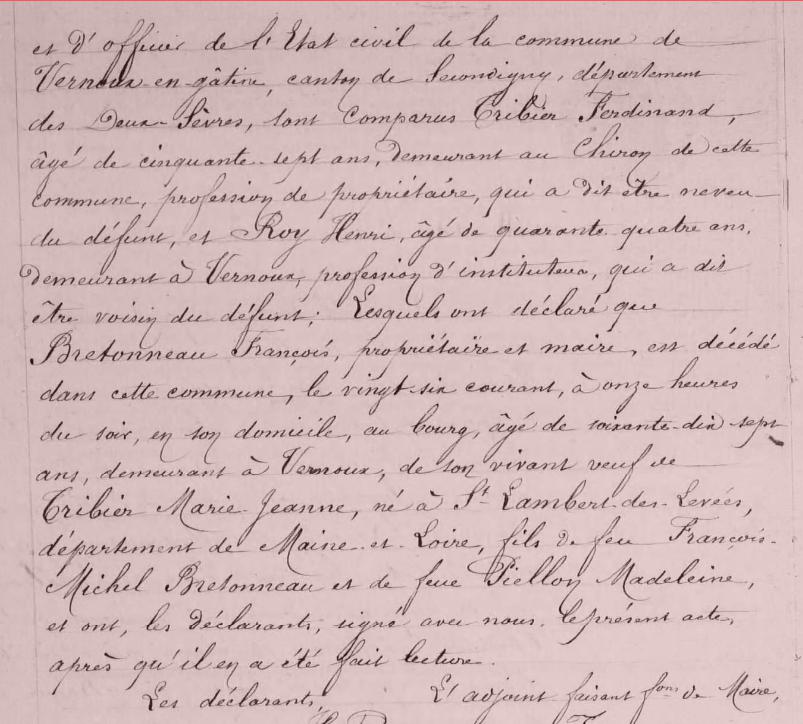 et d'officier de l'Etat civil de la commune de
Vernoux-en-gâtine, canton de Secondigny, département
des Deux-Sèvres, sont comparus Tribier Ferdinand,
âgé de cinquante-sept ans, demeurant au Chiron de cette
commune, profession de propriétaire, qui a dit être neveu
du défunt, et Roy Henri, âgé de quarante-quatre ans,
demeurant à Vernoux, profession d'instituteur, qui a dit
être voisin du défunt; Lesquels ont déclaré que
Bretonneau François, propriétaire et maire, est décédé
dans cette commune, le vingt-six courant, à onze heures
du soir, en son domicile, au bourg, âgé de soixante-dix-sept
ans, demeurant à Vernoux, de son vivant veuf de
Tribier Marie-Jeanne, né à St-Lambert-des-Levées,
département de Maine-et-Loire, fils de feu François-
Michel Bretonneau et de feue Piellon Madeleine,
et ont, les déclarants, signé avec nous le présent acte,
après qu'il en a été fait lecture.
Les déclarants, L'adjoint faisant fons de Maire,